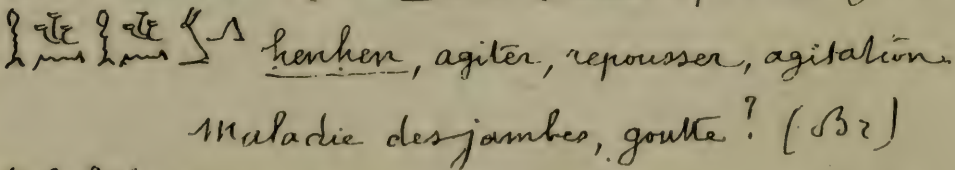 henhen, agiter, repousser, agitation.
Maladie des jambes, goutte? (Br)